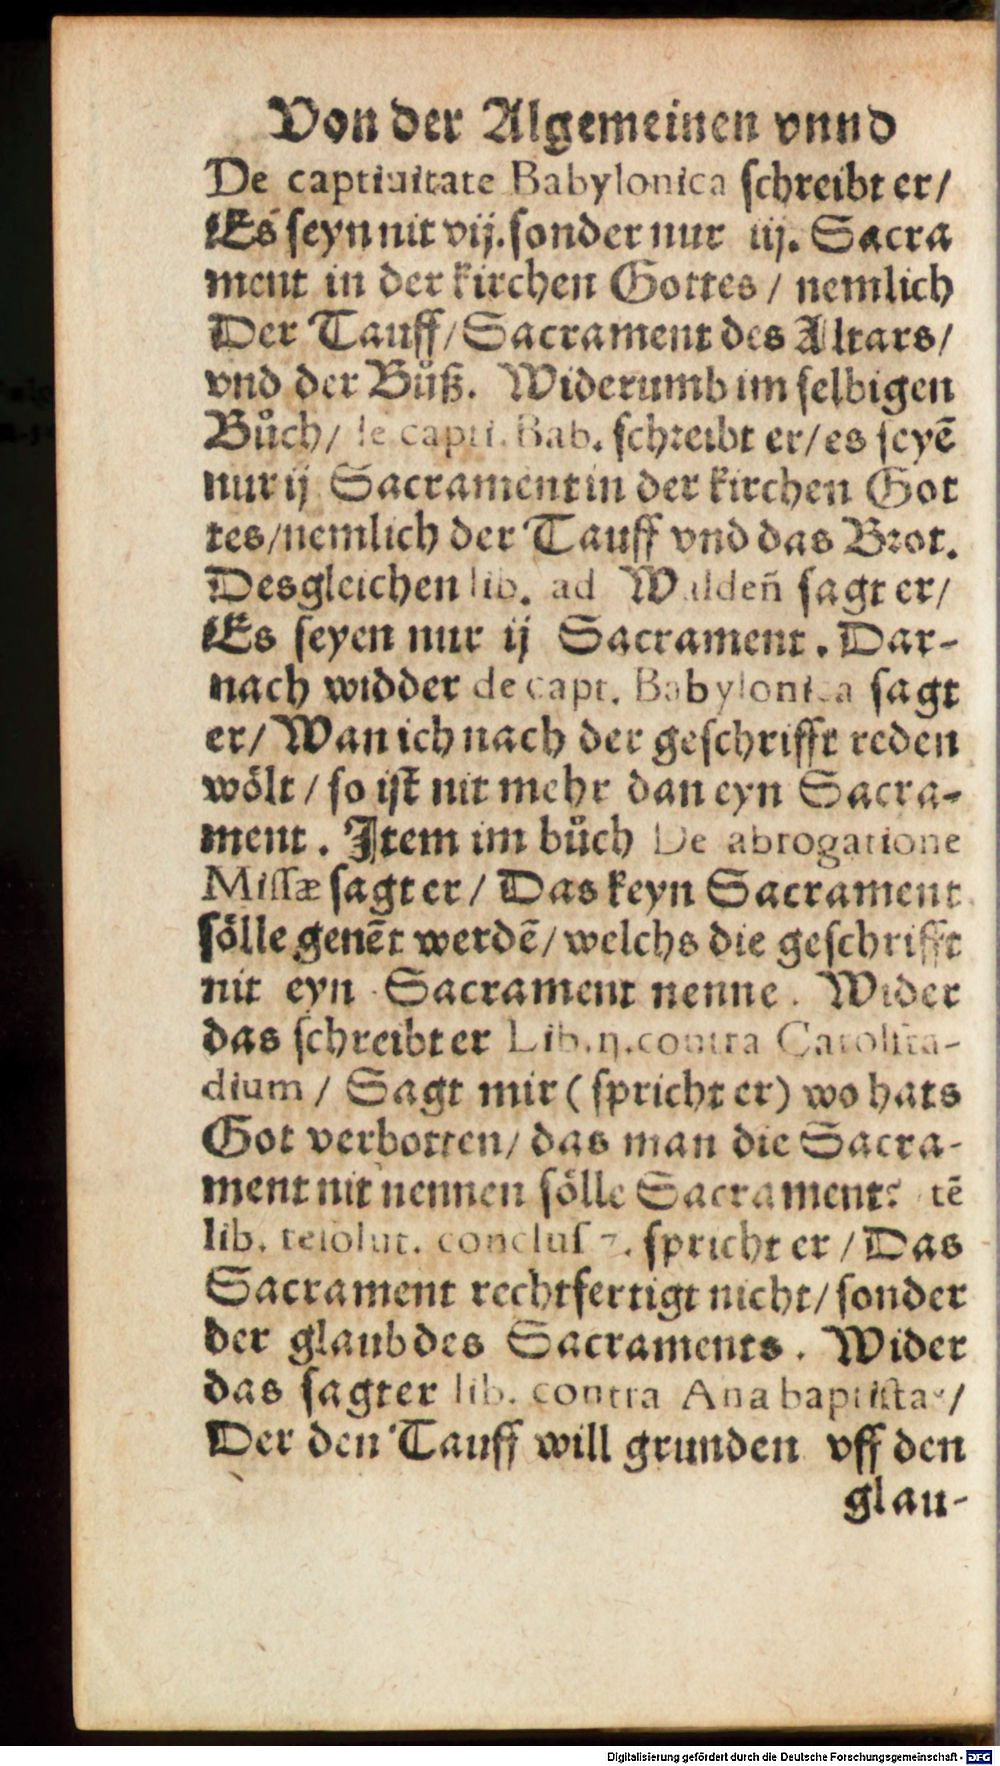 Von der Algemeinen vnnd
De captiuitate Babylonica schreibt er/
Es seyn nit vij. sonder nur iij. Sacra
ment in der kirchen Gottes / nemlich
Der Tauff/ Sacrament des Altars/
vnd der Bůß. Widerumb im selbigen
Bůch/ de capti. Bab. schreibt er/ es seyē
nur ij Sacrament in der kirchen Got
tes/nemlich der Tauff vnd das Brot.
Desgleichen lib. ad Walden̄ sagt er/
Es seyen nur ij Sacrament. Dar-
nach widder de capt. Babylonica sagt
er/ Wan ich nach der geschrifft reden
wôlt / so ist nit mehr dan eyn Sacra-
ment. Item im bůch De abrogatione
Missæ sagt er / Das keyn Sacrament
sôlle genēt werdē/ welchs die geschrifft
nit eyn Sacrament nenne. Wider
das schreibt er Lib. ij. contra Carolsta-
dium / Sagt mir ( spricht er) wo hats
Got verbotten/ das man die Sacra-
ment nit nennen sôlle Sacrament? tē
lib. resolut. conclus . spricht er / Das
Sacrament rechtfertigt nicht/ sonder
der glaub des Sacraments. Wider
das sagt er lib. contra Anabaptistas/
Der den Tauff will grunden vff den
glau-
Digitalisierung gefördert durch die Deutsche Forschungsgemeinschaft - DFG